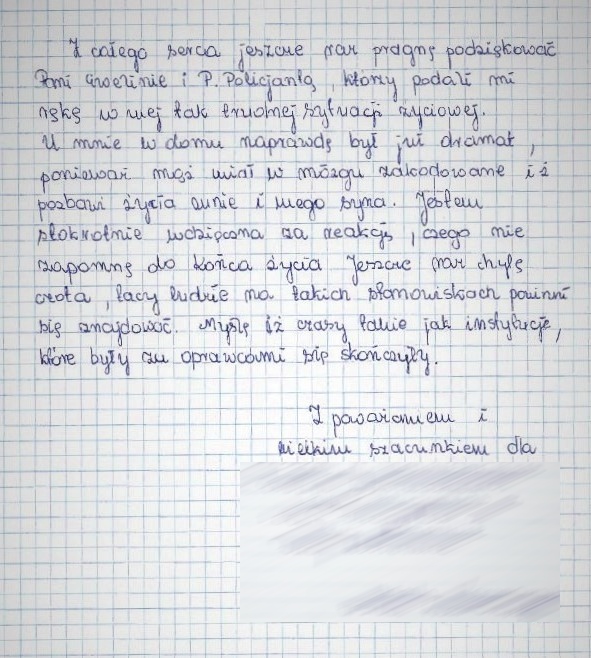 Z całego serca jeszcze raz pragnę podziękować
Pani Grażinie i P. Policjantą, którzy podali mi
rękę w mej tak trudnej sytuacji życiowej.
U mnie w domu naprawdę był już dramat,
ponieważ mąż miał w mózgu zakodowane iż
pozbawi życia mnie i mego syna. Jestem
stokrotnie wdzięczna za reakcję, czego nie
zapomnę do końca życia Jeszcze raz chylę
czoła, tacy ludzie na takich stanowiskach powinni
się znajdować. Myślę iż czasy takie jak instytucje,
które były za oprawcami się skończyły.
Z poważaniem i
wielkim szacunkiem dla